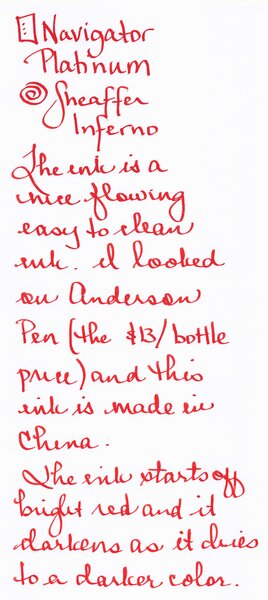 Navigator
Platinum
Sheaffer
Inferno
The ink is a
nice flowing
easy to clean
ink. I looked
on Anderson
Pen (the $13/bottle
price) and this
ink is made in
China.
The ink starts off
bright red and it
darkens as it dries
to a darker color.